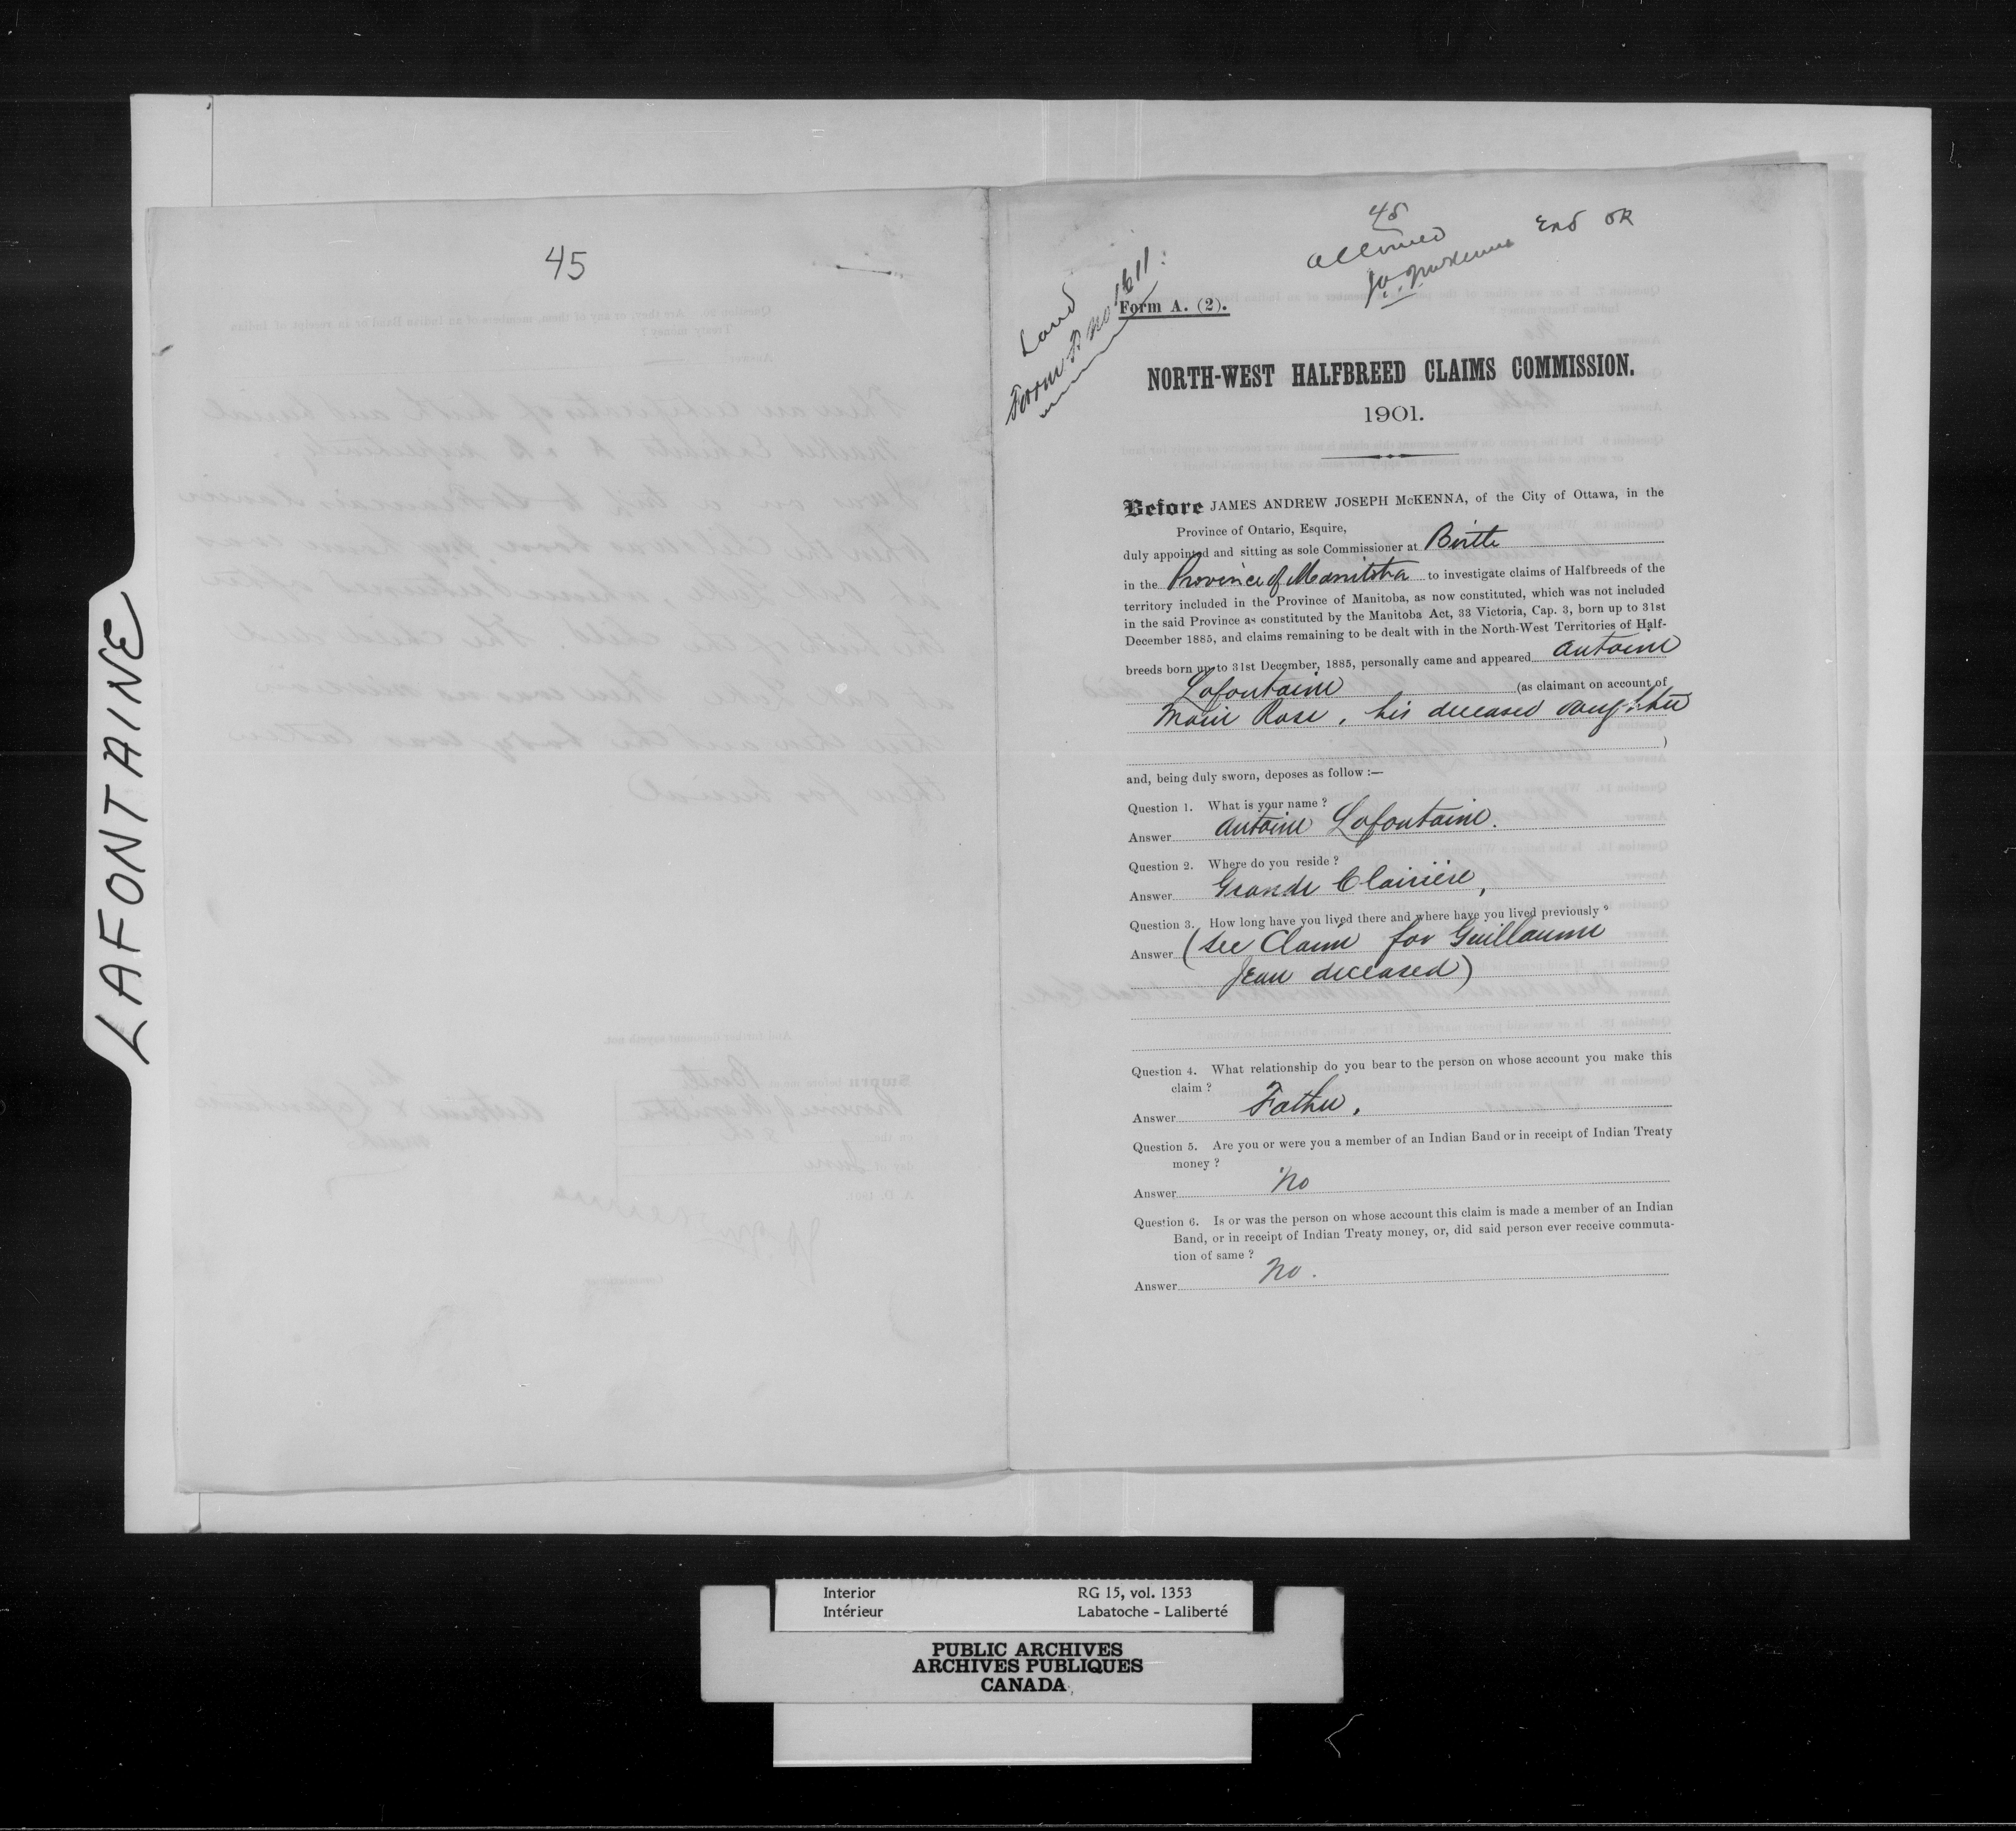 LAFONTAINE
45
45
allowed
JAJ McKenna
End OK
Land
Form A no 1611
Form A. (2).
NORTH-WEST HALFBREED CLAIMS COMMISSION.
1901.
Before JAMES ANDREW JOSEPH McKENNA, of the City of Ottawa, in the
Province of Ontario, Esquire,
duly appointed and sitting as sole Commissioner at Birtle
in the Province of Manitoba to investigate claims of Halfbreeds of the
territory included in the Province of Manitoba, as now constituted, which was not included
in the said Province as constituted by the Manitoba Act, 33 Victoria, Cap. 3, born up to 31st
December 1885, and claims remaining to be dealt with in the North-West Territories of Half-
breeds born up to 31st December, 1885, personally came and appeared Antoine
Lafontaine (as claimant on account of
Marie Rose, his deceased daughter
)
and, being duly sworn, deposes as follow :—
Question 1. What is your name ?
Answer Antoine Lafontaine.
Question 2. Where do you reside ?
Answer Grande Clairière,
Question 3. How long have you lived there and where have you lived previously ?
Answer (See Claim for Guillaume
Jean deceased)
Question 4. What relationship do you bear to the person on whose account you make this
claim ?
Answer Father.
Question 5. Are you or were you a member of an Indian Band or in receipt of Indian Treaty
money ?
Answer No
Question 6. Is or was the person on whose account this claim is made a member of an Indian
Band, or in receipt of Indian Treaty money, or, did said person ever receive commuta-
tion of same ?
Answer No.
Interior
Intérieur
RG 15, vol. 1353
Labatoche - Laliberté
PUBLIC ARCHIVES
ARCHIVES PUBLIQUES
CANADA